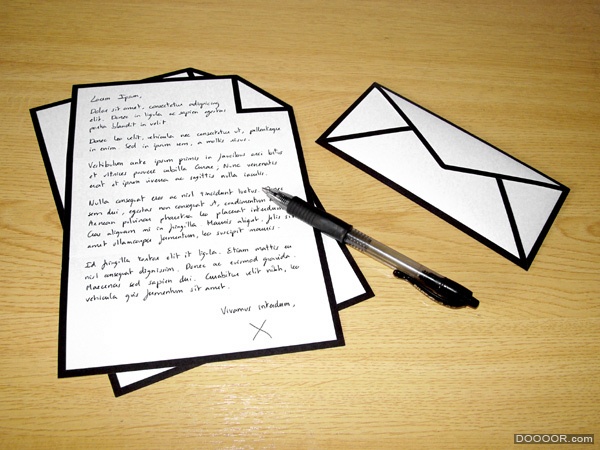 Lorem Ipsum,
Dolor sit amet, consectetur adipiscing
elit. Donec in ligula ac sapien egestas
porta blandit in velit
Donec leo velit, vehicula nec consectetur ut, pellentesque
in enim. Sed in ipsum sem, a mollis risus.
Vestibulum ante ipsum primis in faucibus orci luctus
et ultrices posuere cubilia Curae; Nunc venenatis
erat et ipsum viverra ac sagittis nulla iaculis.
Nulla consequat eros ac nisl tincidunt luctus
sem dui, egestas non consequat et, condimentum
Aenean pulvinar pharetra leo placerat interdum
Cras aliquam mi in fringilla Mauris aliquet. felis
amet ullamcorper fermentum, leo suscipit mauris.
Id fringilla tortor elit it ligula. Etiam mattis eu
nisl consequat dignissim. Donec ac euismod gravida.
Maecenas sed sapien dui. Curabitur velit nibh, leo
vehicula quis fermentum sit amet.
Vivamus interdum,
X
DOOOOR.com